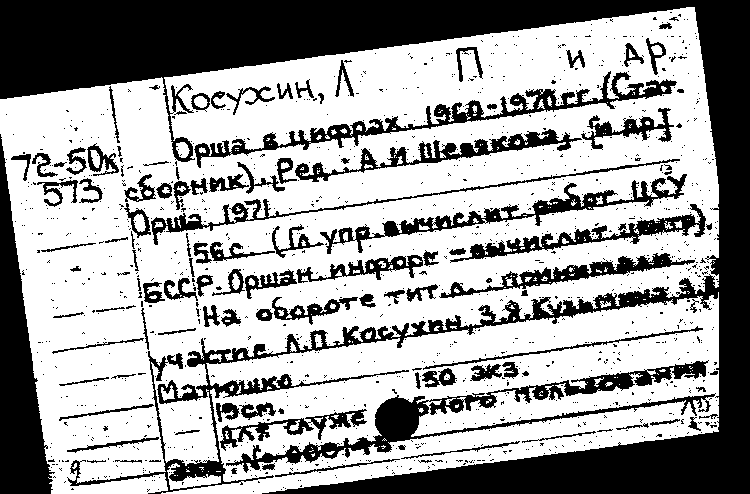 Косухин, Л П и др
72-50к
573
Орша в цифрах. 1960-1970 гг. (Стат.
сборник). [Ред.: А.И.Шевякова, [и др].
Орша, 1971.
56 с. (Гл. упр. вычислит. работ ЦСУ
БССР. Оршан. информ-вычислит. центр).
На обороте тит. л.: принимали
участие Л.П.Косухин, З.Я.Кузьмина, З.Д.
Матюшко.
19 см. 150 экз.
Для служебного пользования.
Экз. № 000145.